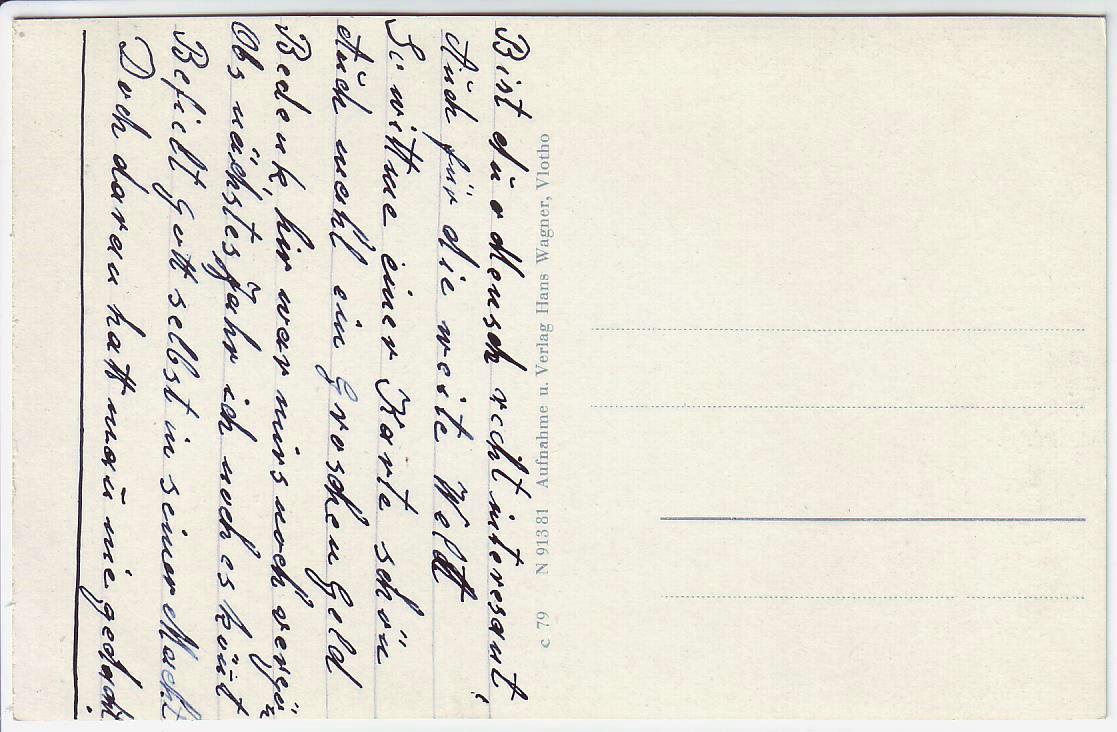 Bist dü o Mensch recht interesant
Auch für die weite Welt
So wittme einer Karte schön
Auch wohl ein Groschen Geld
Bedenk, hir war mirs noch vergön
Obs nächstes Jahr ich noch es könt
Befielt Gott selbst in seiner Macht
Doch daran hatt man nie gedacht
c 79 N 913 81 Aufnahme u. Verlag Hans Wagner, Vlotho